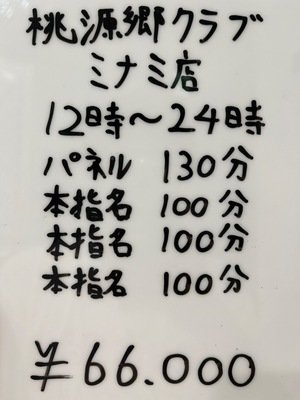 桃源郷クラブ
ミナミ店
12時～24時
パネル 130分
本指名 100分
本指名 100分
本指名 100分
¥66.000